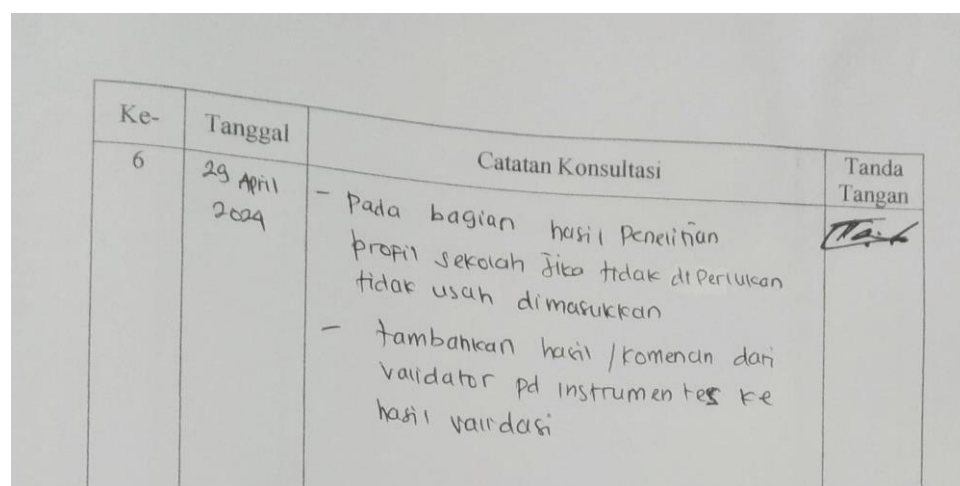 Ke-
Tanggal
Catatan Konsultasi
Tanda
Tangan
6
29 April
2024
- Pada bagian hasil Penelitian
profil sekolah Jika tidak diperlukan
tidak usah dimasukkan
- tambahkan hasil / komentar dari
validator pd instrumen tes ke
hasil validasi